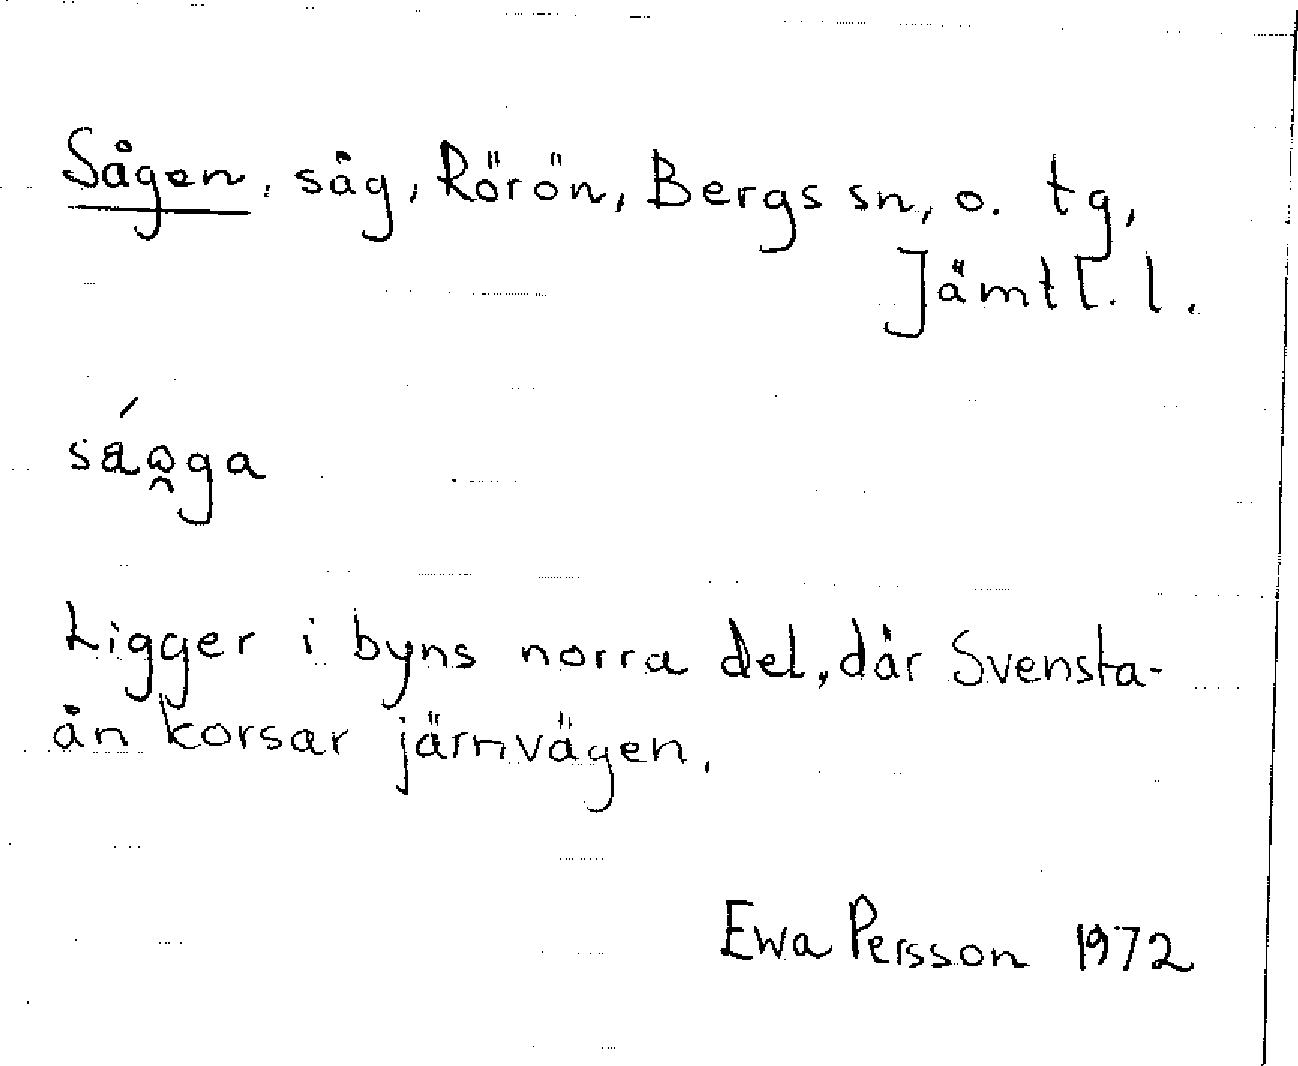 Sågen, såg, Rörön, Bergs sn, o. tg,
Jämtl. l.
sáω̯ga
Ligger i byns norra del, där Svensta-
ån korsar järnvägen.
Ewa Persson 1972